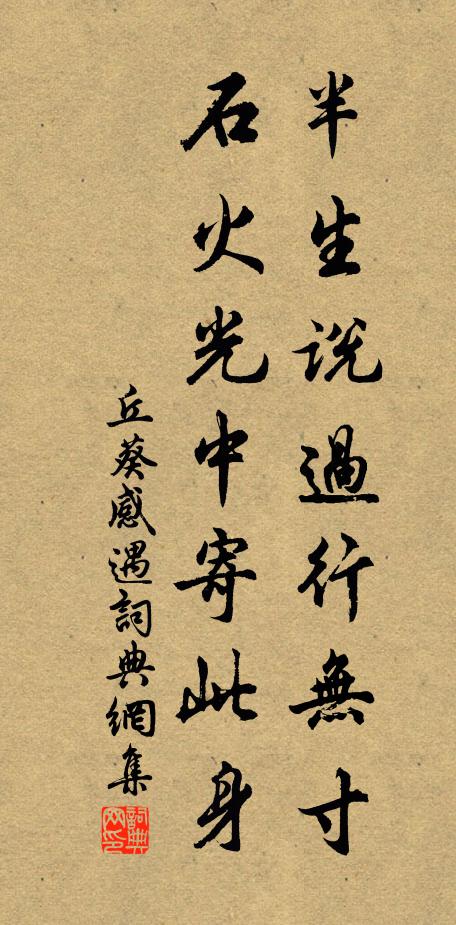 半生說過行無寸
石火光中寄此身
丘葵感遇詞典網集
詞典網印